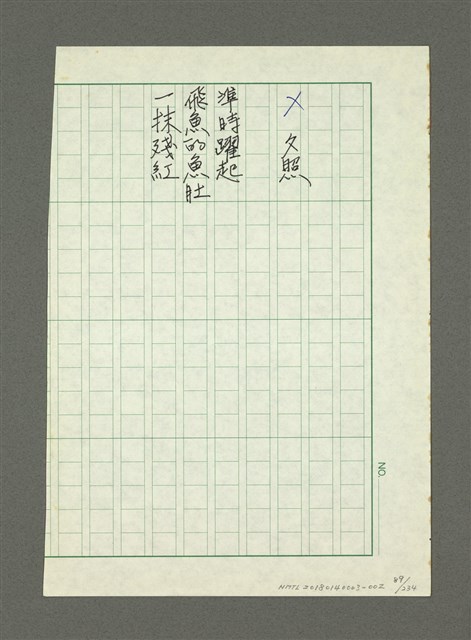 夕照
準時躍起
飛魚的魚肚
一抹殘紅
NO.
NMTL20180140003-002
89/234